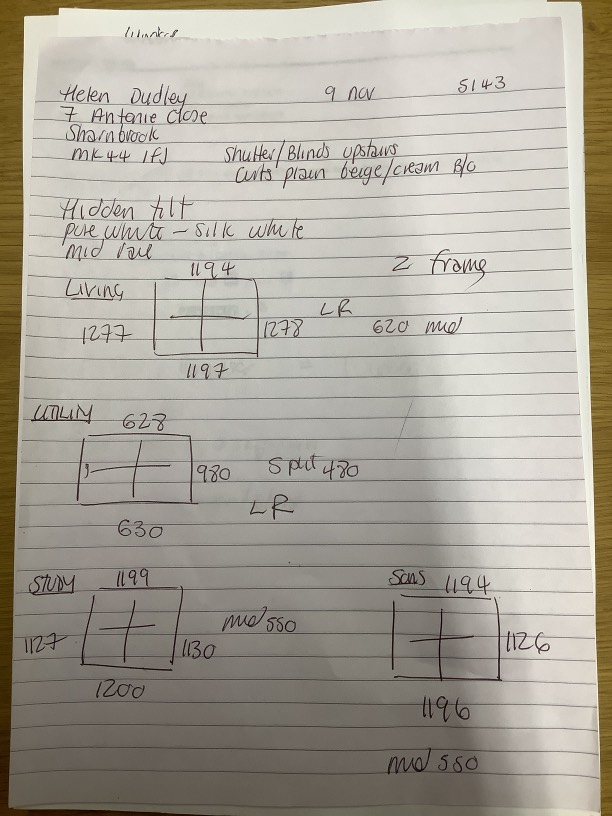 Helen Dudley 9 nov 5143
7 Antonie Close
Sharnbrook
MK44 1FJ Shutter/Blinds upstairs
Curts plain beige/cream B/O
Hidden tilt
pure white - silk white
mid rail
1194 Z frame
Living
1277 1278 LR 620 mid
1197
UTILITY 628
980 Split 480
LR
630
STUDY 1199 Sons 1194
1127 1130 mid 550 1126
1200 1196
mid 550